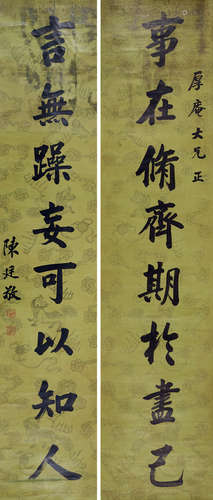 厚庵大兄正
事在脩齊期於盡己
言無躁妄可以知人
陳廷敬